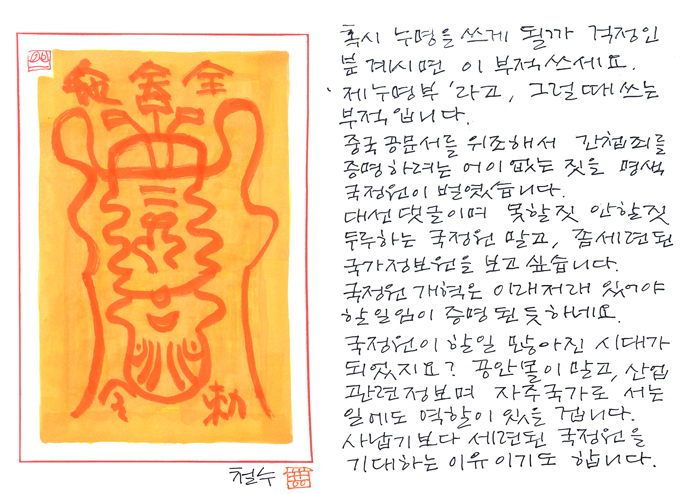 혹시 누명을 쓰게 될까 걱정인
분 계시면 이 부적쓰세요.
'제누명부'라고, 그럴때쓰는
부적입니다.
중국공문서를 위조해서 간첩죄를
증명하려는 어이없는 짓을 명색
국정원이 벌였습니다.
대선댓글이며 못할짓 안할짓
두루하는 국정원 말고, 좀세련된
국가정보원을 보고싶습니다.
국정원개혁은 이래저래 있어야
할일임이 증명된듯하네요.
국정원이 할일 많아진 시대가
되었지요? 공안몰이 말고, 산업
관련정보며 자주국가로 서는
일에도 역할이 있을 겁니다.
사납기보다 세련된 국정원을
기대하는 이유이기도 합니다.
철수